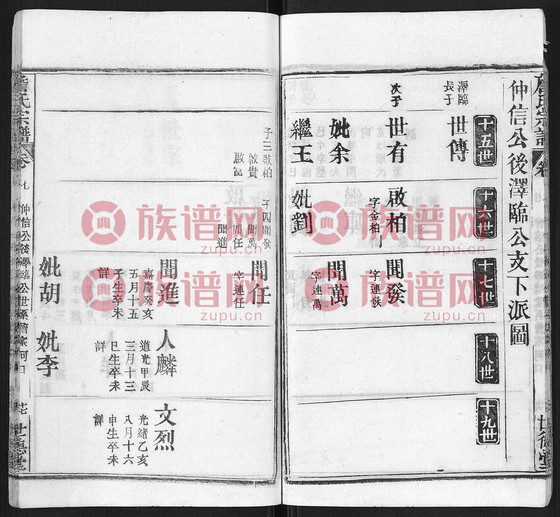 仲信公後澤臨公支下派圖
十五世
十六世
十七世
十八世
十九世
澤臨
長子
世傳
次子
世有
妣余
繼王
啟柏
字金柏
妣劉
聞發
字連發
聞萬
字連萬
子三啟柏
啟貴
啟記
子四聞發
聞萬
聞任
聞進
聞任
字連任
聞進
嘉慶癸亥
五月十五
子生卒未
詳
妣胡
人麟
道光甲辰
三月十三
巳生卒未
詳
妣李
文烈
光緒乙亥
八月十六
申生卒未
詳
氏宗譜
卷
九
仲信公後澤臨公世系
世德堂
族谱网
zupu.cn
族谱网
zupu.cn
族谱网
zupu.cn
族谱网
zupu.cn